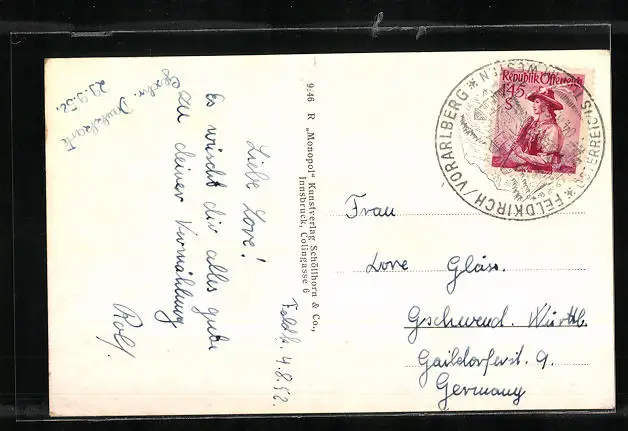 Feldk. 4.8.52.
Liebe Lore!
Es wünscht dir alles gute
zu deiner Vermählung
Rolf.
23.9.52.
9:46 R „Monopol" Kunstverlag Schöllhorn & Co.,
Innsbruck, Colingasse 6
Republik Österreich
1·45
S
FELDKIRCH/VORARLBERG
Frau
Lore Gläss.
Gschwend. Württb.
Gaildorferst. 9.
Germany